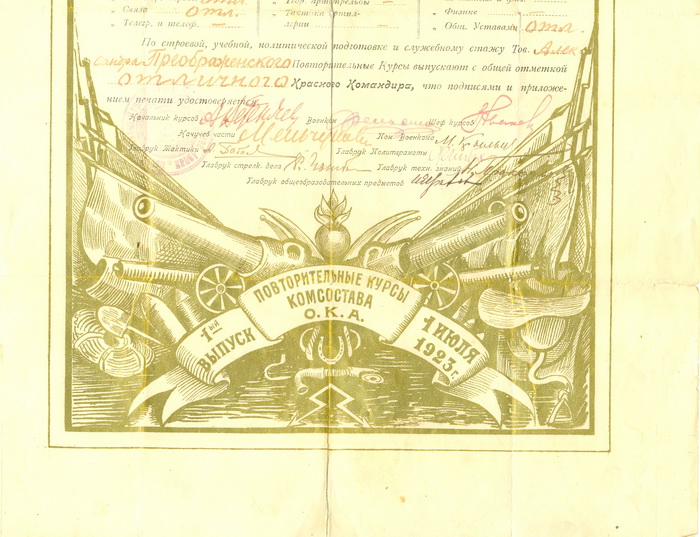 " Связь отл.
" Телегр. и телеф. —
" Тактика артил-
лерии —
" Физике
" Общ. Уставами отл.
По строевой, учебной, политической подготовке и служебному стажу Тов. Алек
сандра Преображенского Повторительные Курсы выпускают с общей отметкой
отличного Красного Командира, что подписями и приложе-
нием печати удостоверяется.
Начальник курсов Военком Шеф курсов
Начучеб части Пом. Военкома
Главрук Тактики Главрук Политграмоты
Главрук стрелк. дела Главрук техн. знаний
Главрук общеобразовательных предметов
ПОВТОРИТЕЛЬНЫЕ КУРСЫ
КОМСОСТАВА
О.К.А.
1ый
ВЫПУСК
1 ИЮЛЯ
1923 г.